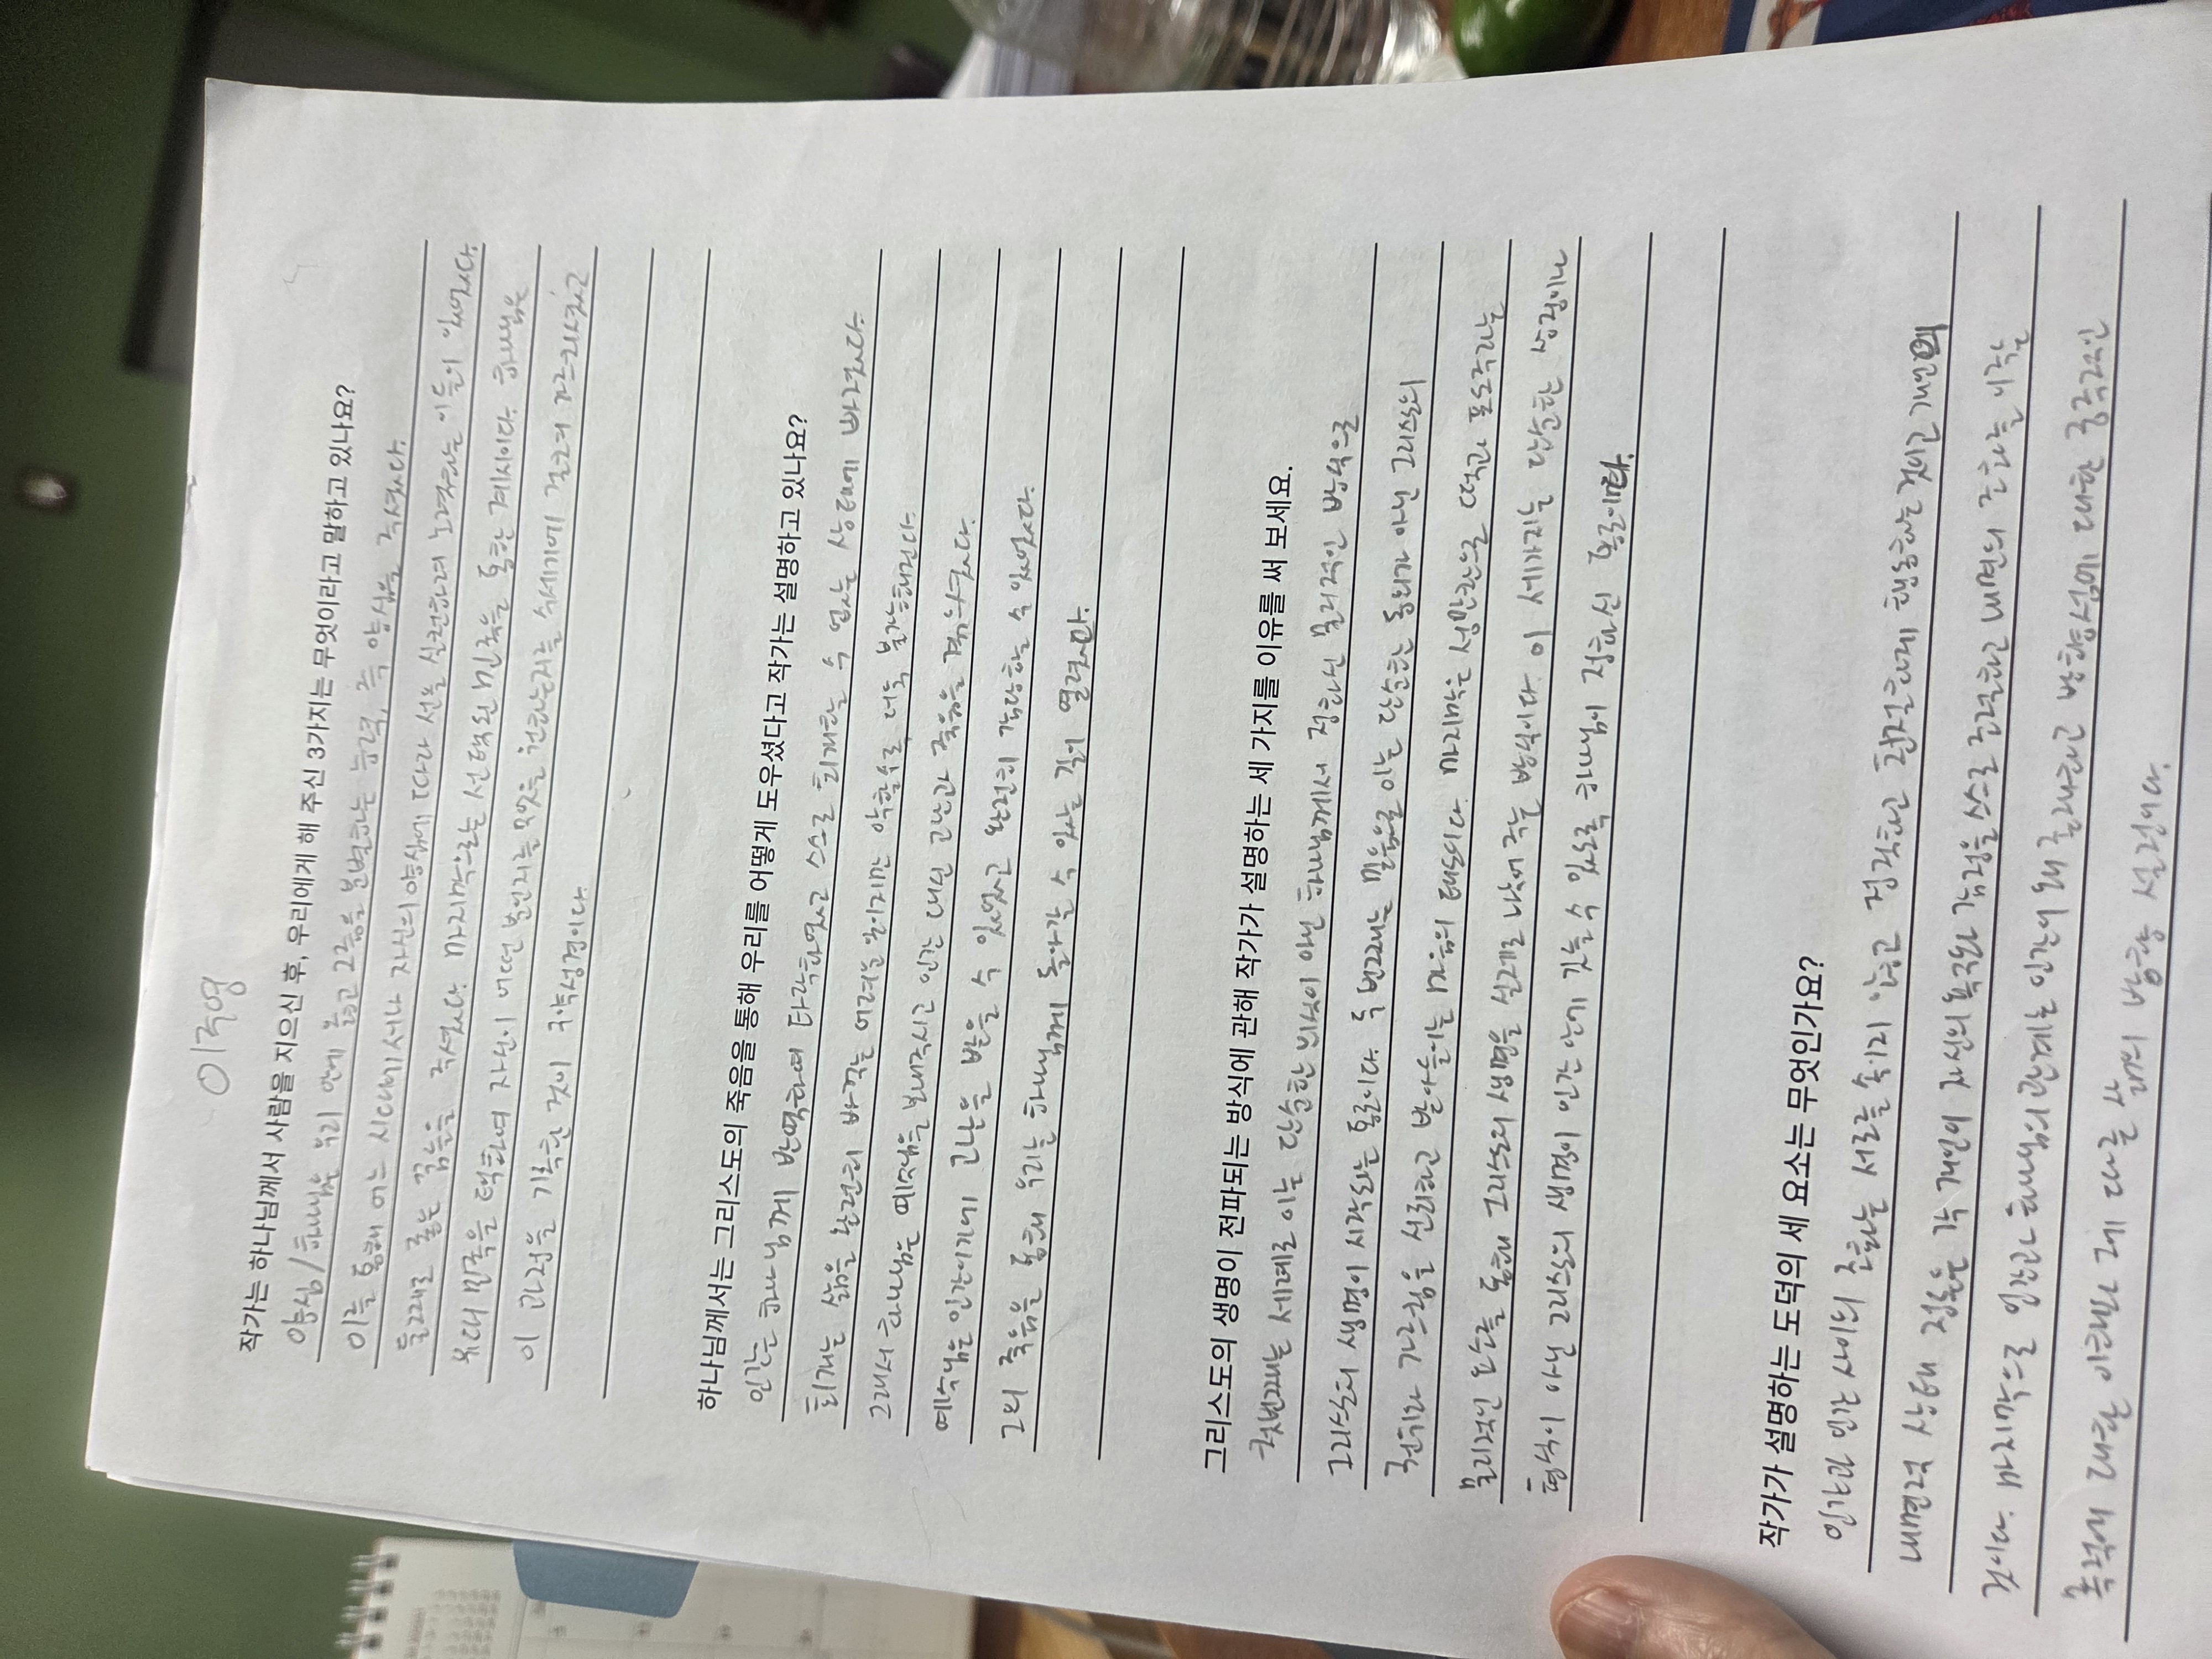 이주영
작가는 하나님께서 사람을 지으신 후, 우리에게 해 주신 3가지는 무엇이라고 말하고 있나요?
양심/하나님은 우리 안에 옳고 그름을 분별하는 능력, 즉 양심을 주셨다.
이를 통해 어느 시대에서나 자신의 양심에 따라 선을 실천하려 노력하는 이들이 있었다.
둘째로 좋은 꿈들을 주셨다. 마지막으로는 선택된 민족을 통한 계시이다. 하나님은
유대 민족을 택하여 자신이 어떤 분인지를 무엇을 원하는지를 수세기에 걸쳐 가르치셨고
이 과정을 기록한 것이 구약성경이다.
하나님께서는 그리스도의 죽음을 통해 우리를 어떻게 도우셨다고 작가는 설명하고 있나요?
인간은 하나님께 반역하여 타락하였고 스스로 회개할 수 없는 상태에 빠졌다.
회개는 삶을 완전히 바꾸는 어려운 일이지만 악할수록 더욱 불가능해진다.
그래서 하나님은 예수님을 보내주시고 인간 대신 고난과 죽음을 겪으셨다.
예수님은 인간이기에 고난을 받을 수 있었고 완전히 감당할 수 있었다.
그의 죽음을 통해 우리는 하나님께 돌아갈 수 있는 길이 열렸다.
그리스도의 생명이 전파되는 방식에 관해 작가가 설명하는 세 가지를 이유를 써 보세요.
첫번째는 세례로 이는 단순한 의식이 아닌 하나님께서 정하신 물리적인 방식으로
그리스도의 생명이 시작되는 통로이다. 두 번째는 믿음으로 이는 단순한 동의가 아닌 그리스도의
권위와 가르침을 신뢰하고 받아들이는 마음의 태도이다. 마지막은 성만찬으로 떡과 포도주라는
물리적인 요소를 통해 그리스도의 생명을 실제로 나눠 주는 방식이다. 이 세가지는 단순한 상징이나
형식이 아닌 그리스도의 생명이 인간 안에 깃들 수 있도록 하나님이 정하신 통로이다.
작가가 설명하는 도덕의 세 요소는 무엇인가요?
인간과 인간 사이의 조화는 서로를 속이지 않고 정직하고 공정하게 행동하는 것이고 개인의
내면적 상태 정돈은 각 개인이 자신의 욕구와 감정을 스스로 조절하고 내면의 조화를 이루는
것이다. 마지막으로 인간과 하나님의 관계로 인간이 왜 존재하고 방향성에 대한 궁극적인
목적에 대한 이해와 그에 따른 삶의 방향 설정이다.